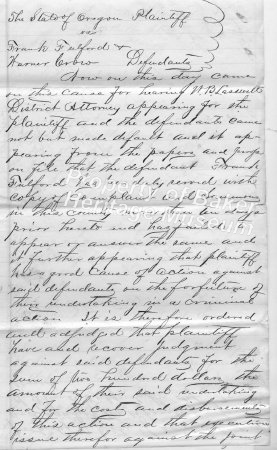 The State of Oregon Plaintiff
vs
Frank Fulford &
Warner Crow Defendants
Now on this day came
on this cause for hearing
District Attorney appearing for the
plaintiff and the defendants came
not but made default and it ap-
pearing from the papers and proof
on file that the defendant Frank
Fulford was duly served with
copy of complaint and summons
in this county more than days
prior hereto and has failed to
appear or answer the same and
it further appearing that plaintiff
has a good cause of action against
said defendants on the forfeiture of
their undertaking in a criminal
action. It is therefore ordered
and adjudged that plaintiff
have and recover judgment
against said defendants for the
sum of two hundred dollars the
amount of their said undertaking
and for the costs and disbursements
of this action and that execution
issue therefor against the joint
Property of Baker
Heritage Museum